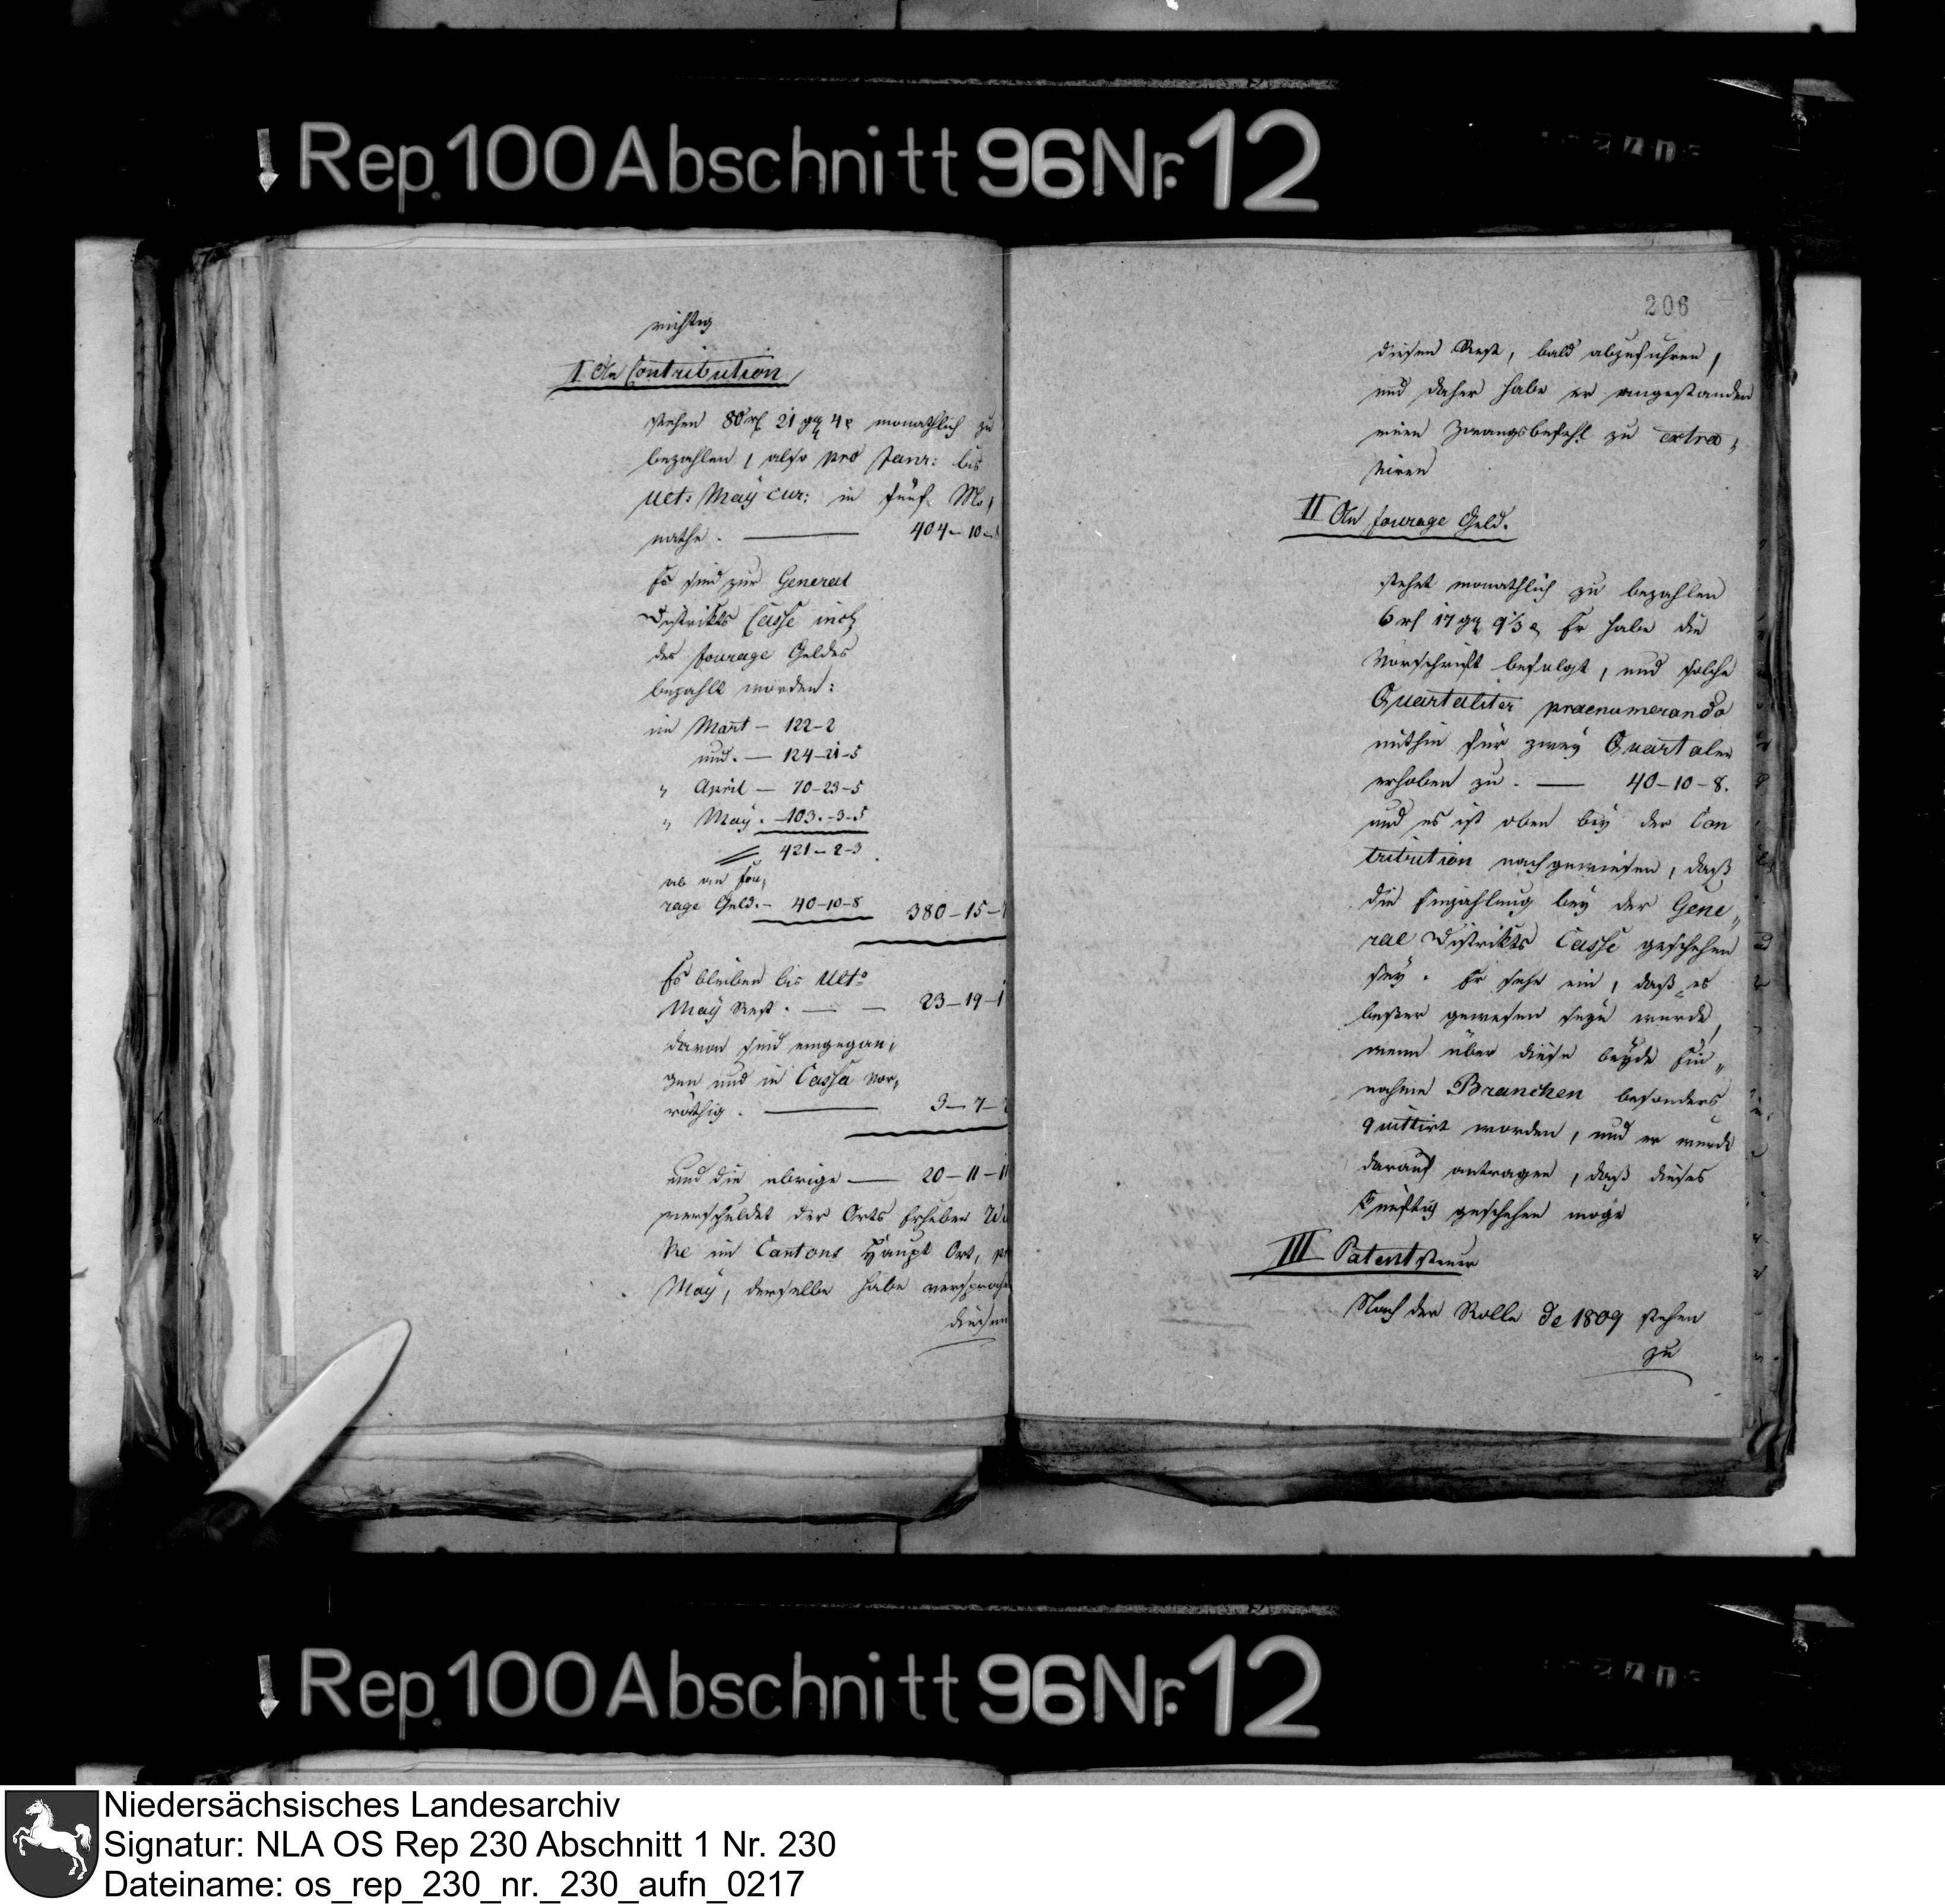 Rep. 100 Abschnitt 96 Nr. 12
richtig
I. An Contribution
stehen 80 rt 21 gg 4 monathlich zu
bezahlen, also pro Janr: bis
ult: Maÿ cur: in fünf Mo,
nathe. — 404 – 10 – 8
Es sind zur General
Distrikts Casse incl
des fourage Geldes
bezahlt worden:
im Mart – 122–2
und. – 124–21–5
„ April – 70–23–5
„ Maÿ. – 103.–3–5
421–2–3
ab an fou,
rage Geld. – 40–10–8 380–15–7
Es bleiben bis Ulto
Maÿ Rest. — — 23–19–1
davon sind eingegan,
gen und in Cassa vor,
räthig. — 3–7–
und die übrige — 20–11–11
verschuldet der Orts Erheber
im Cantons Haupt Ort,
Maÿ, derselbe habe versproche
diesen
206
diesen Rest, bald abzuführen,
und daher habe er angestanden
einen Zwangsbefehl zu extra,
hiren
II An fourage Geld.
stehet monathlich zu bezahlen
6 rt 17 gg 9 1/3 Er habe die
Vorschrift befolgt, und solche
Quartaliter praenumerando
mithin für zweÿ Quartalen
erhoben zu. — 40–10–8.
und es ist oben beÿ der Con
tribution nachgewiesen, daß
die Einzahlung beÿ der Gene„
ral Distrikts Casse geschehen
seÿ. Er sehe ein, daß es
besser gewesen seÿn würde,
wenn über diese beÿde Ein„
nahme Branchen besonders
quittirt worden, und er würde
darauf antragen, daß dieses
künftig geschehen möge
III Patentsteuer
Nach der Rolle de 1809 stehen
zu
Rep. 100 Abschnitt 96 Nr. 12
Niedersächsisches Landesarchiv
Signatur: NLA OS Rep 230 Abschnitt 1 Nr. 230
Dateiname: os_rep_230_nr._230_aufn_0217